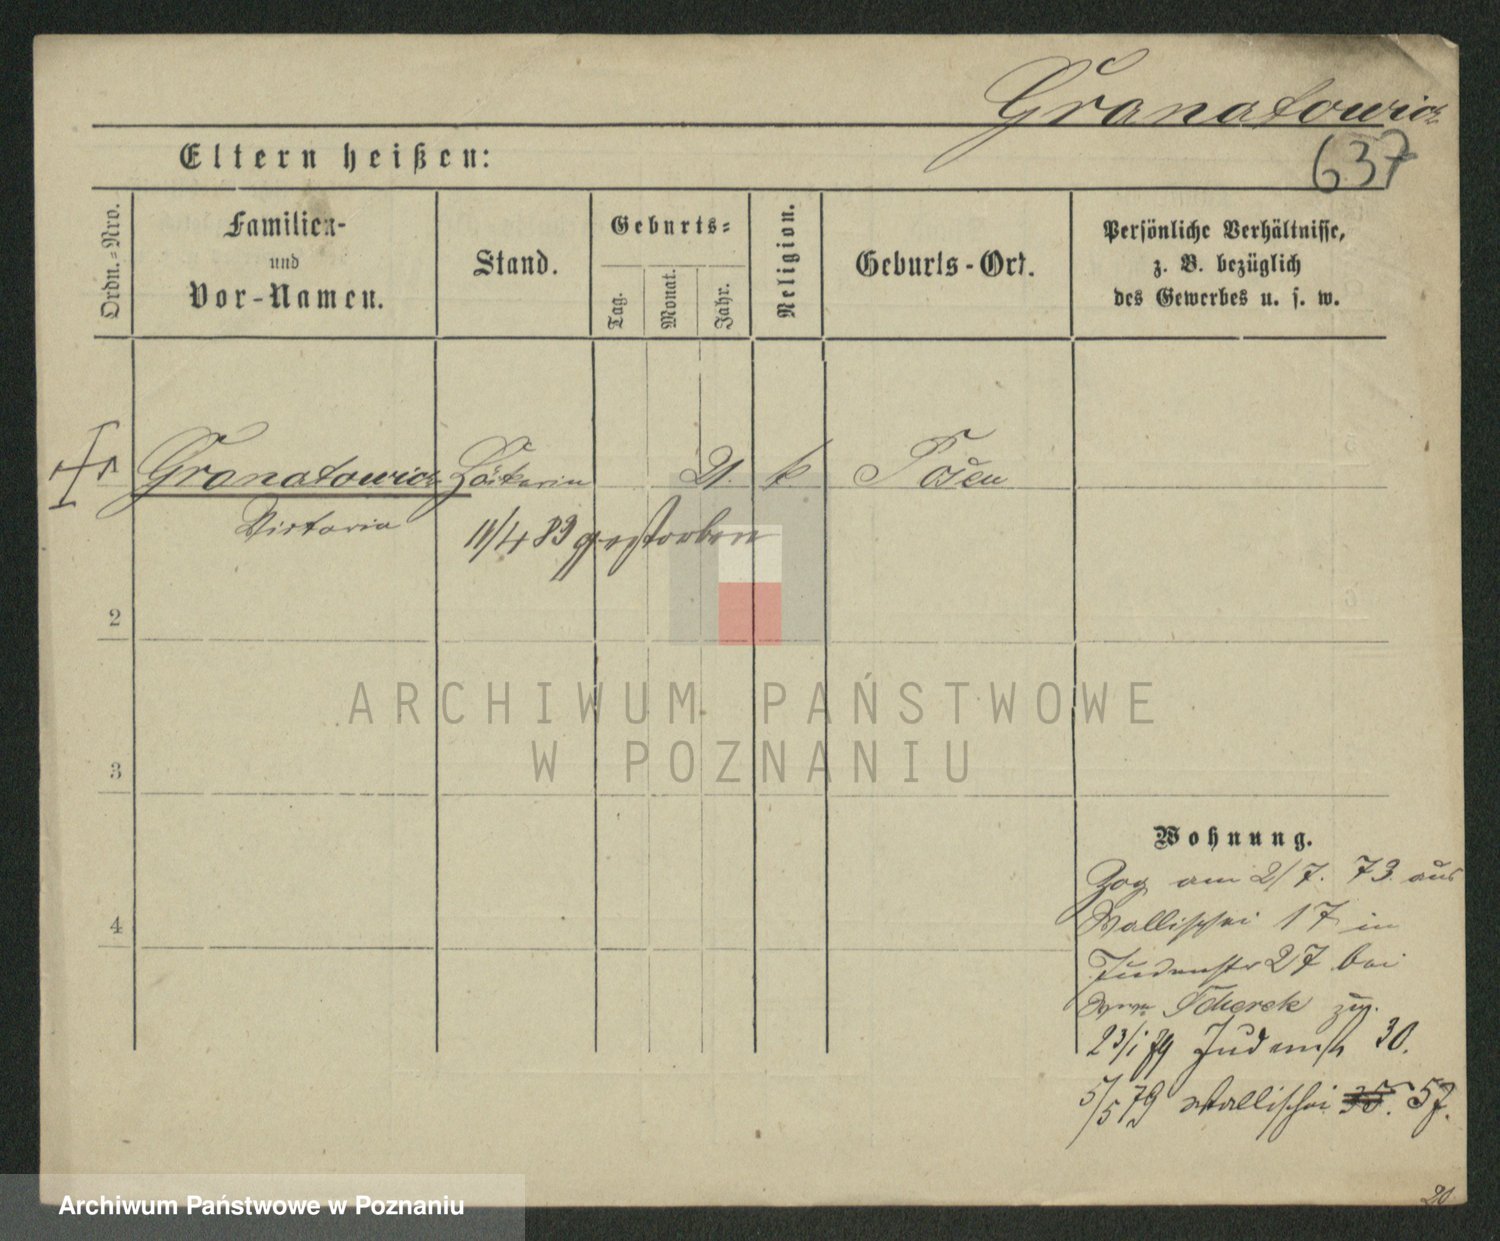 Granatowicz
637
Eltern heißen:
Ordn.=Nro.
Familien-
und
Vor-Namen.
Stand.
Geburts=
Tag.
Monat.
Jahr.
Religion.
Geburts-Ort.
Persönliche Verhältnisse,
z. B. bezüglich
des Gewerbes u. s. w.
Granatowicz Hökerin 21. k. Posen
Victoria
11/4 83 gestorben
2
3
4
Wohnung.
Zog am 2/7. 73 aus
Wallischei 17 in
Judenstr 27 bei
Scherek zu.
23/1 79 Judenstr 30.
5/5 79 Wallischei 35. 57.
20
ARCHIWUM PAŃSTWOWE
W POZNANIU
Archiwum Państwowe w Poznaniu